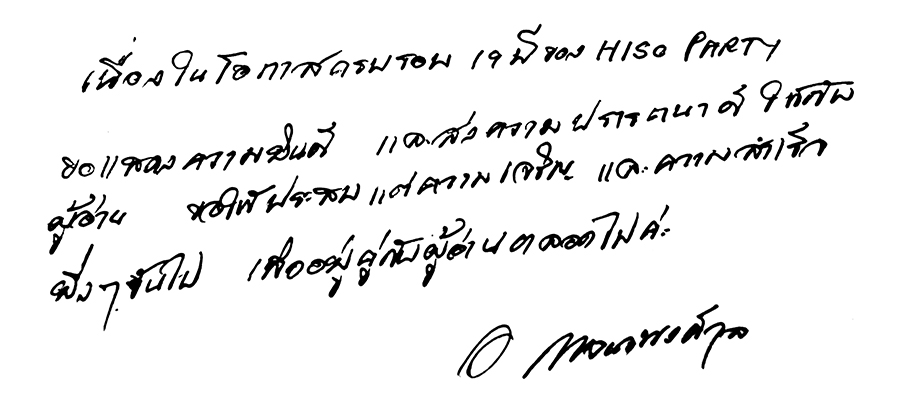 เนื่องในโอกาสครบรอบ 19 ปีของ HISO PARTY
ขอแสดงความยินดี และส่งความปรารถนาดี ให้กับ
ผู้อ่าน ขอให้ประสบแต่ความเจริญ และความสำเร็จ
ยิ่งๆขึ้นไป เพื่ออยู่คู่กับผู้อ่านตลอดไปค่ะ